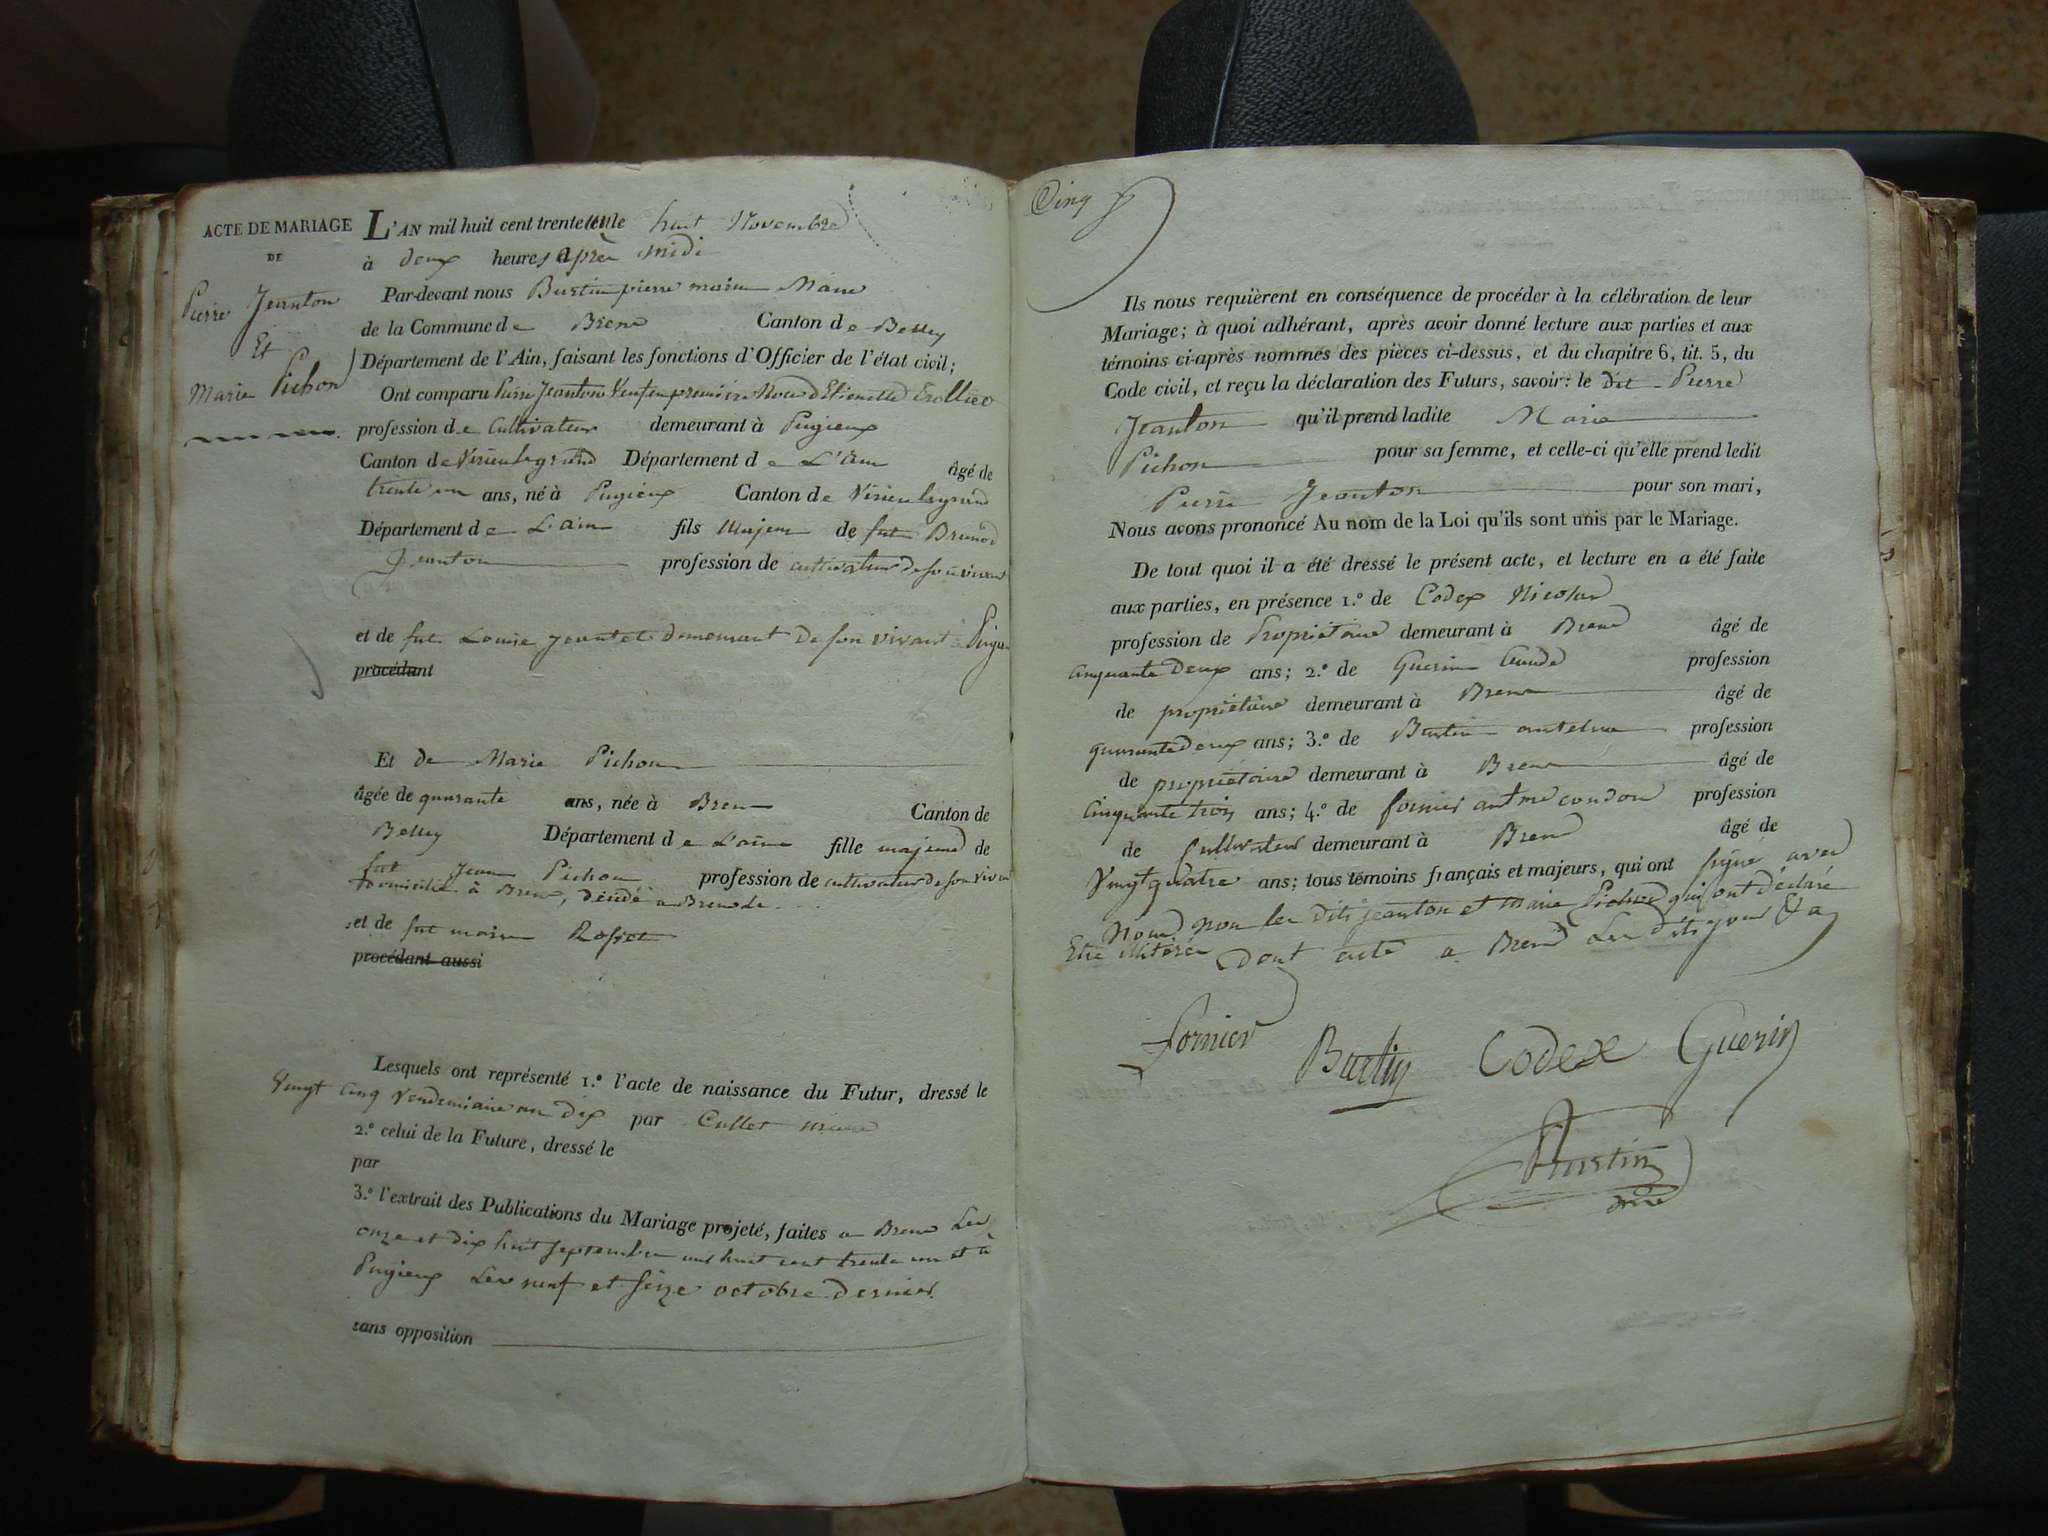 ACTE DE MARIAGE
DE
Pierre Jeanton
Et
Marie Pichon
L'AN mil huit cent trente un le huit Novembre
à deux heures après midi
Par-devant nous Bustin pierre marin Maire
de la Commune de Bren Canton de Belley
Département de l'Ain, faisant les fonctions d'Officier de l'état civil;
Ont comparu Pierre Jeanton Veuf en première Noce d'Etiennette Trollier
profession de Cultivateur demeurant à Pugieux
Canton de Virieu legrand Département de L'ain âgé de
trente un ans, né à Pugieux Canton de Virieu legrand
Département de L'ain fils Majeur de fut
Jeanton profession de cultivateur de son vivant
et de fut Louise demeurant de son vivant à
procédant
Et de Marie Pichon
âgée de quarante ans, née à Bren Canton de
Belley Département de L'ain fille majeure de
fut Jean Pichon profession de cultivateur de son vivant
domicilié à Bren, décédé a
et de fut
procédant aussi
Lesquels ont représenté 1.º l'acte de naissance du Futur, dressé le
Vingt cinq Vendemiaire an dix par Cullet maire
2.º celui de la Future, dressé le
par
3.º l'extrait des Publications du Mariage projeté, faites a Bren Les
onze et dix huit septembre mil huit cent trente un et à
Pugieux Les neuf et seize octobre dernier
sans opposition
Cinq
Ils nous requièrent en conséquence de procéder à la célébration de leur
Mariage; à quoi adhérant, après avoir donné lecture aux parties et aux
témoins ci-après nommés des pièces ci-dessus, et du chapitre 6, tit. 5, du
Code civil, et reçu la déclaration des Futurs, savoir: le dit Pierre
Jeanton qu'il prend ladite Marie
Pichon pour sa femme, et celle-ci qu'elle prend ledit
Pierre Jeanton pour son mari,
Nous avons prononcé Au nom de la Loi qu'ils sont unis par le Mariage.
De tout quoi il a été dressé le présent acte, et lecture en a été faite
aux parties, en présence 1.º de Codex Nicolas
profession de Propriétaire demeurant à Bren âgé de
cinquante Deux ans; 2.º de Guerin Claude profession
de propriétaire demeurant à Bren âgé de
quarante deux ans; 3.º de Bustin antelme profession
de propriétaire demeurant à Bren âgé de
Cinquante trois ans; 4.º de fornier profession
de Cultivateur demeurant à Bren âgé de
Vingt quatre ans; tous témoins français et majeurs, qui ont signé avec
Nous non les dits jeanton et marie Pichon qui ont déclaré
Etre illitérés Dont acte a Bren Les dits jour & a
Fornier Bustin Codex Guerin
Bustin
mre